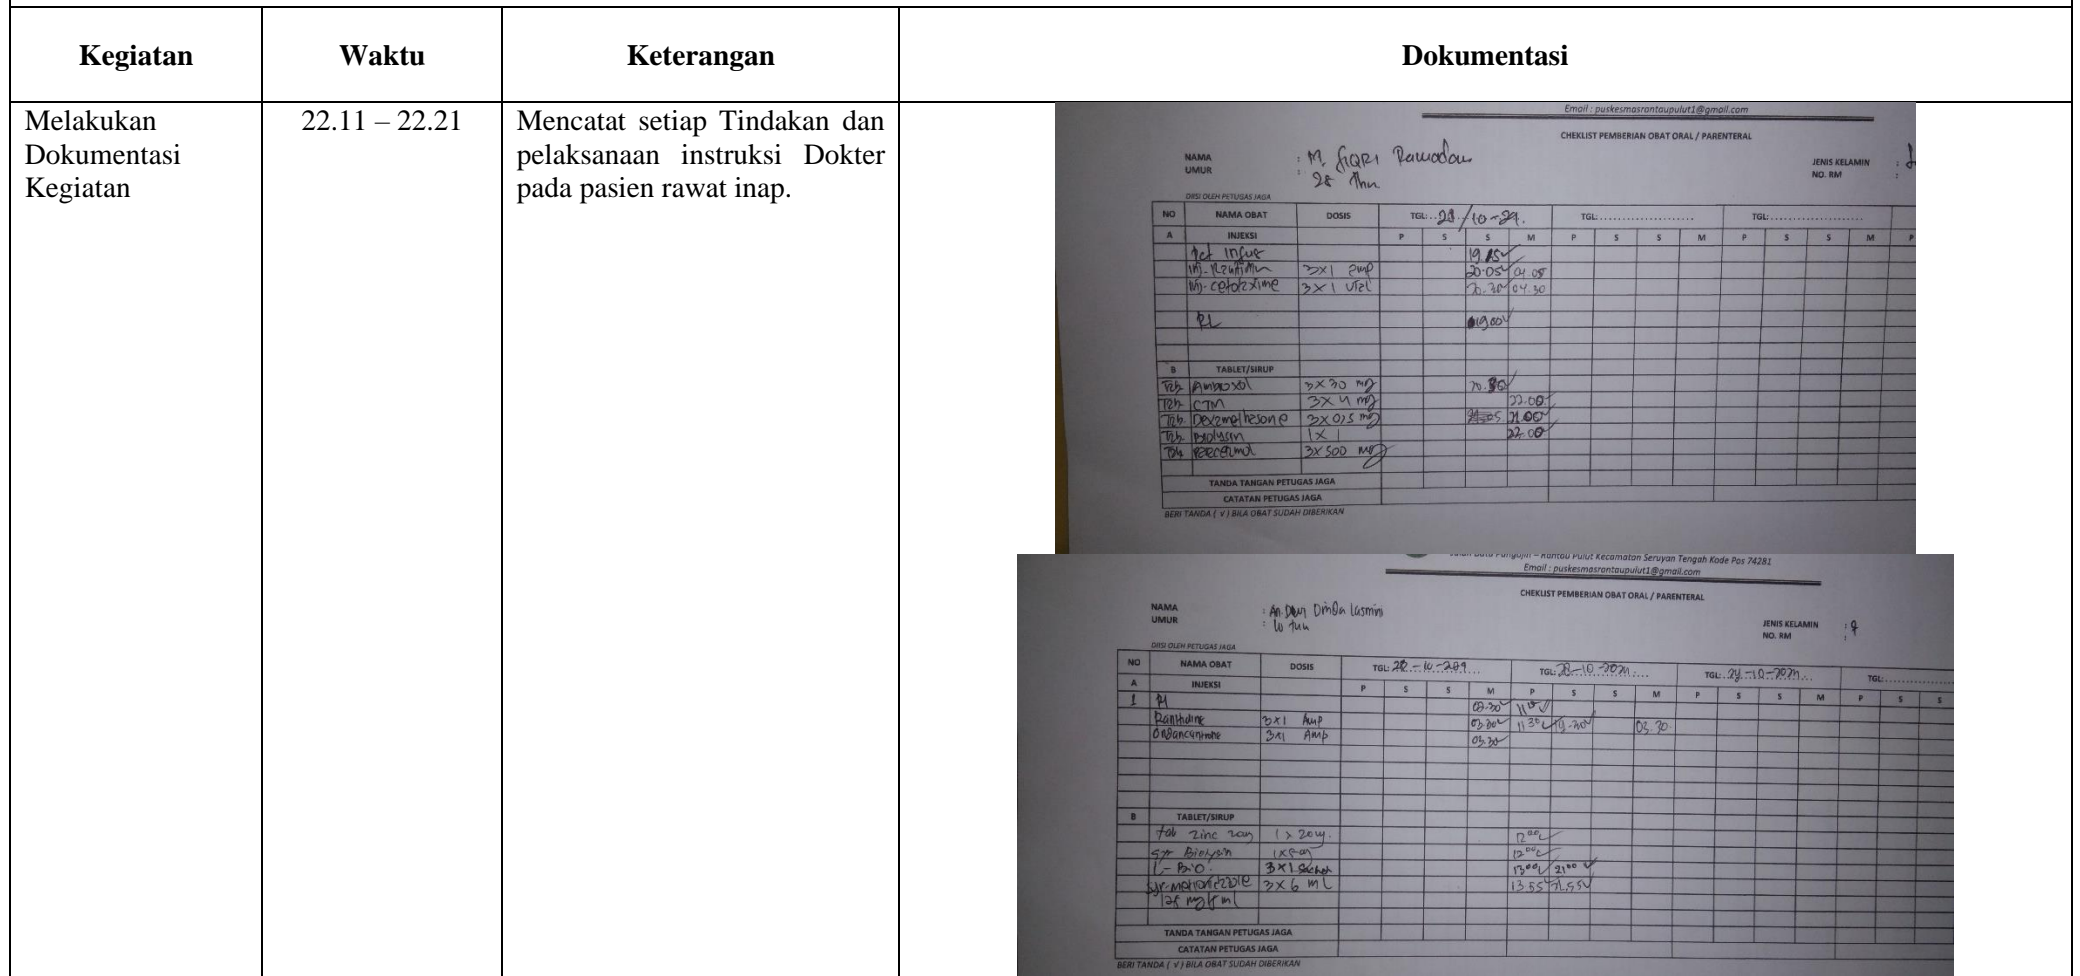 Kegiatan
Waktu
Keterangan
Dokumentasi
Melakukan
Dokumentasi
Kegiatan
22.11 – 22.21
Mencatat setiap Tindakan dan
pelaksanaan instruksi Dokter
pada pasien rawat inap.
Email : puskesmasrantaupulut1@gmail.com
CHEKLIST PEMBERIAN OBAT ORAL / PARENTERAL
NAMA : M. FiQRI Ramadan
UMUR : 28 Thn
JENIS KELAMIN :
NO. RM :
DIISI OLEH PETUGAS JAGA
NO NAMA OBAT DOSIS TGL: /10-24. TGL: TGL:
A INJEKSI P S S M P S S M P S S M P
Infus 19.
inj. 3x1 amp 20.05 √ 04.05
inj. cefotaxime 3x1 vial 20.30 √ 04.30
RL 19.00 √
B TABLET/SIRUP
Tab. Ambroxol 3x30 mg 20. √
Tab. CTM 3x4 mg 22.00 √
Tab. Dexamethasone 3x0,5 mg
Tab. Biolysin 1x1 22.00 √
Tab. 3x500 mg
TANDA TANGAN PETUGAS JAGA
CATATAN PETUGAS JAGA
BERI TANDA ( √ ) BILA OBAT SUDAH DIBERIKAN
Rantau Pulut Kecamatan Seruyan Tengah Kode Pos 74281
Email : puskesmasrantaupulut1@gmail.com
CHEKLIST PEMBERIAN OBAT ORAL / PARENTERAL
NAMA : An. Dinda Lasmini
UMUR : 10
JENIS KELAMIN : ♀
NO. RM :
DIISI OLEH PETUGAS JAGA
NO NAMA OBAT DOSIS TGL: TGL: TGL: TGL:
A INJEKSI P S S M P S S M P S S M P S S
1 Rl 03.30 √ 11
Ranitidine 3x1 Amp 03.30 √ 11 30 √ 19.30 √ 03.30
3x1 Amp 03.30
B TABLET/SIRUP
tab zinc 1 x 20 12 00 √
syr Biolysin 12 00 √
L-Bio. 3x1 Sachet 13 00 √ 21 00 √
3x6 ml 13.55 √ 21.55 √
TANDA TANGAN PETUGAS JAGA
CATATAN PETUGAS JAGA
BERI TANDA ( √ ) BILA OBAT SUDAH DIBERIKAN